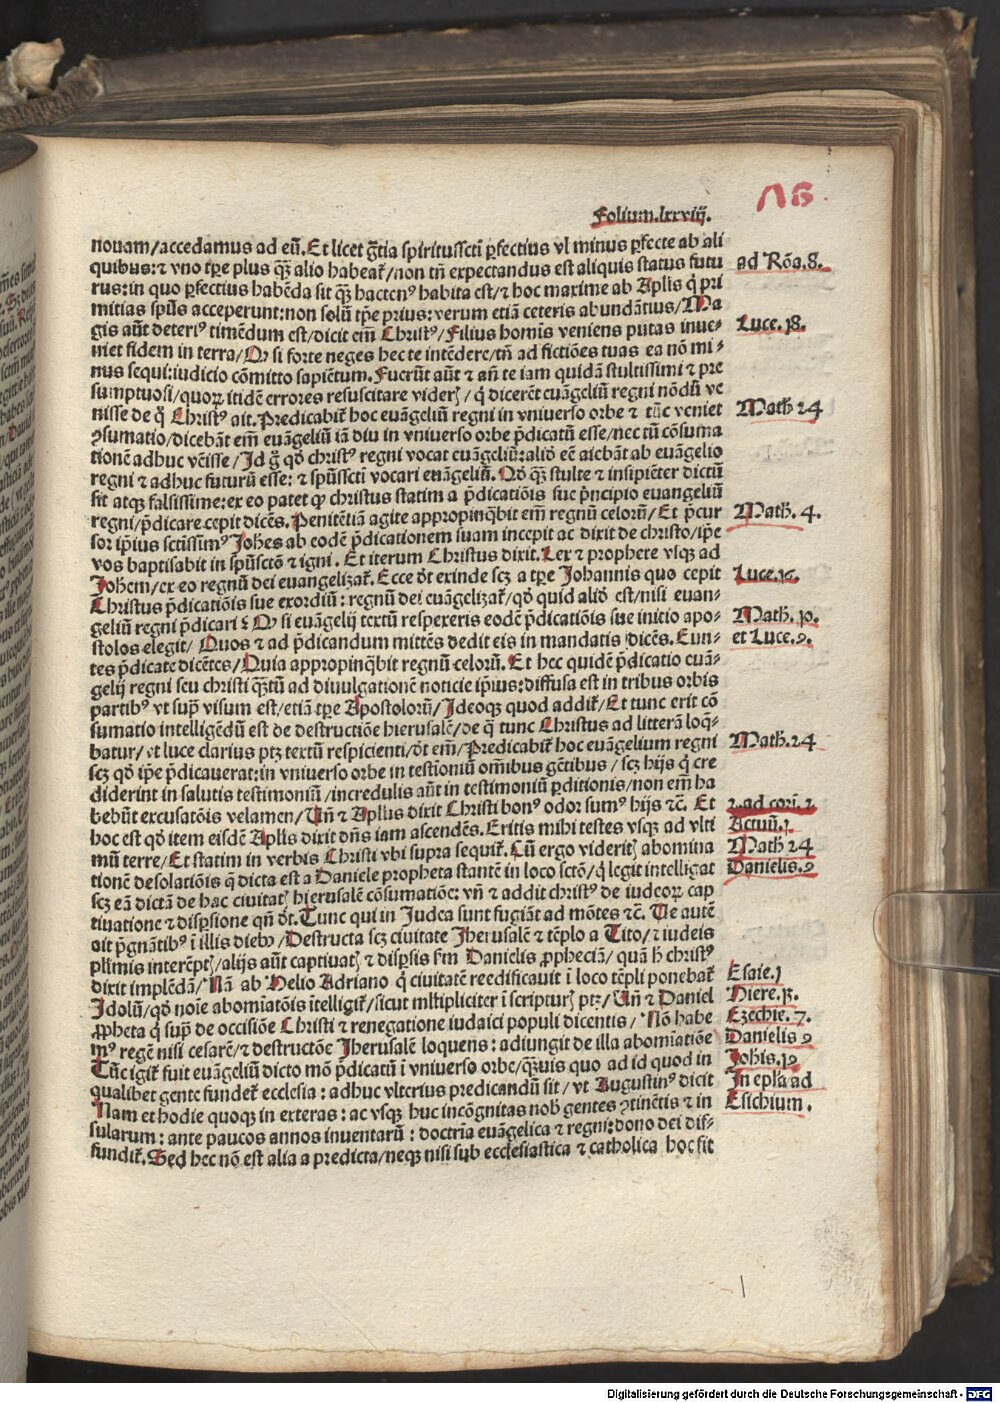 Folium.lxxviij.
nouam/accedamus ad eū. Et licet gr̄tia spiritussc̄ti ꝑfectius vl minus ꝑfecte ab ali
quibus: ⁊ vno tp̄e plus qʒ̄ alio habeat̄/non tn̄ expectandus est aliquis status futu
rus: in quo ꝑfectius habēda sit qʒ̄ hactenꝰ habita est/⁊ hoc maxime ab Ap̄lis q̇ pri
mitias spūs acceperunt: non solū tp̄e prius: verum etiā ceteris abundātius/Ma
gis aūt deteriꝰ timēdum est/dicit em̄ Christꝰ/Filius homīs veniens putas inue-
niet fidem in terra/Qꝫ si forte neges hec te intēdere/tn̄ ad fictiōes tuas ea nō mi-
nus sequi: iudicio cōmitto sapiētum. Fuerūt aūt ⁊ an̄ te iam quidā stultissimi ⁊ pre
sumptuosi/quoꝝ itidē errores resuscitare viderꝭ/q̇ dicerēt euāgeliū regni nōdū ve
nisse de q̊ Christꝰ ait. Predicabit̄ hoc euāgeliū regni in vniuerso orbe ⁊ tūc veniet
ꝯsumatio/dicebāt em̄ euāgeliū iā diu in vniuerso orbe p̄dicatū esse/nec tū cōsuma
tionē adhuc vēisse/Id g̊ qd̊ christꝰ regni vocat euāgeliū: aliō eē aiebāt ab euāgelio
regni ⁊ adhuc futurū esse: ⁊ sp̄ussc̄ti vocari euāgeliū. Qd̊ qʒ̄ stulte ⁊ insipiēter dictū
sit atqꝫ falsissime: ex eo patet ꝙ christus statim a p̄dicatiōis sue p̄ncipio euangeliū
regni/p̄dicare cepit dicēs. Penitētiā agite appropinq̇bit em̄ regnū celorū/Et p̄cur
sor ip̄ius sctīssimꝰ Joh̄es ab eodē p̄dicationem suam incepit ac dixit de christo/ip̄e
vos baptisabit in sp̄usctō ⁊ igni. Et iterum Christus dixit. Lex ⁊ prophete vsqꝫ ad
Joh̄em/ex eo regnū dei euangelizat̄. Ecce ōt exinde scꝫ a tp̄e Johannis quo cepit
Christus p̄dicatiōis sue exordiū: regnū dei euāgelizat̄/qd̊ quid aliō est/nisi euan-
geliū regni p̄dicari? Qꝫ si euāgelij textū respexeris eodē p̄dicatiōis sue initio apo-
stolos elegit/Quos ⁊ ad p̄dicandum mittēs dedit eis in mandatis dicēs. Eun-
tes p̄dicate dicētes/Quia appropinq̇bit regnū celorū. Et hec quidē p̄dicatio euā-
gelij regni seu christi qʒ̄tū ad diuulgationē noticie ip̄ius: diffusa est in tribus orbis
partibꝰ vt supͣ visum est/etiā tp̄e Apostolorū/Ideoqꝫ quod addit̄/Et tunc erit cō
sumatio intelligēdū est de destructiōe hierusalē/de q̊ tunc Christus ad litterā loq̄-
batur/vt luce clarius ptꝫ textū respicienti/ōt em̄/Predicabit̄ hoc euāgelium regni
scꝫ qd̊ ip̄e p̄dicauerat: in vniuerso orbe in testīoniū om̄ibus gētibus/scꝫ hijs q̇ cre
diderint in salutis testimoniū/incredulis aūt in testimoniū ꝑditionis/non em̄ ha
bebūt excusatōis velamen/Vn̄ ⁊ Ap̄lus dixit Christi bonꝰ odor sumꝰ hijs ⁊c̄. Et
hoc est qd̊ item eisdē Ap̄lis dixit dn̄s iam ascendēs. Eritis mihi testes vsqꝫ ad vlti
mū terre/Et statim in verbis Christi vbi supra sequit̄. Cū ergo videritꝭ abomina
tionē desolatiōis q̄ dicta est a Daniele propheta stantē in loco sctō/q̇ legit intelligat
scꝫ eā dictā de hac ciuitatꝭ hierusalē cōsumatiōe: vn̄ ⁊ addit christꝰ de iudeoꝝ cap
tiuatione ⁊ disꝑsione qn̄ ōt. Tunc qui in Judea sunt fugiāt ad mōtes ⁊c̄. Ue autē
ait p̄gnātibꝰ ī illis diebꝫ/Destructa scꝫ ciuitate Jherusalē ⁊ tēplo a Tito/⁊ iudeis
plīmis interēptꝭ/alijs aūt captiuatꝭ ⁊ disꝑsis fm Danielis ꝓpheciā/quā h̄ christꝰ
dixit implēdā/Nā ab Helio Adriano q̇ ciuitatē reedificauit ī loco tēpli ponebat̄
Idolū/qd̊ noīe abomīatōis ītelligit̄/sicut mltīpliciter ī scripturꝭ ptꝫ/Vn̄ ⁊ Daniel
ꝓpheta q̇ supͣ de occisiōe Christi ⁊ renegatione iudaici populi dicentis/Nō habe
mꝰ regē nisi cesarē/⁊ destructōe Jherusalē loquens: adiungit de illa abomīatiōe
Tūc igit̄ fuit euāgeliū dicto mō p̄dicatū ī vniuerso orbe/qʒ̄uis quo ad id quod in
qualibet gente fundet̄ ecclesia: adhuc vlterius predicandū sit/vt Augustinꝰ dicit
Nam et hodie quoqꝫ in exteras: ac vsqꝫ huc incōgnitas nob̄ gentes ꝯtinētis ⁊ in
sularum: ante paucos annos inuentarū: doctrīa euāgelica ⁊ regni: dono dei dif-
fundit̄. Sed hec nō est alia a predicta/neqꝫ nisi sub ecclesiastica ⁊ catholica hoc fit
ad Rōa. 8.
Luce. 18.
Math 24
Math. 4.
Luce. 16.
Math. 10.
et Luce. 9.
Math. 24
2. ad cori. 2
Actuū. 1
Math 24
Danielis. 9
Esaie. 1
Hiere. 32.
Ezechie. 7.
Danielis 9
Johīs. 19
In epl̄a ad
Esichium.
Digitalisierung gefördert durch die Deutsche Forschungsgemeinschaft - DFG